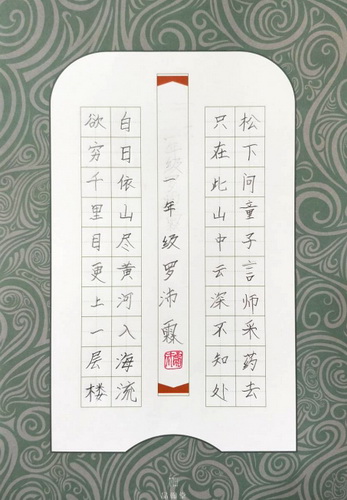 松下问童子言师采药去
只在此山中云深不知处
一年级罗沛霖
白日依山尽黄河入海流
欲穷千里目更上一层楼